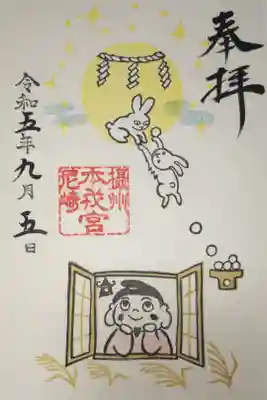 奉拝
摂州
本戎宮
尼崎
令和五年九月五日